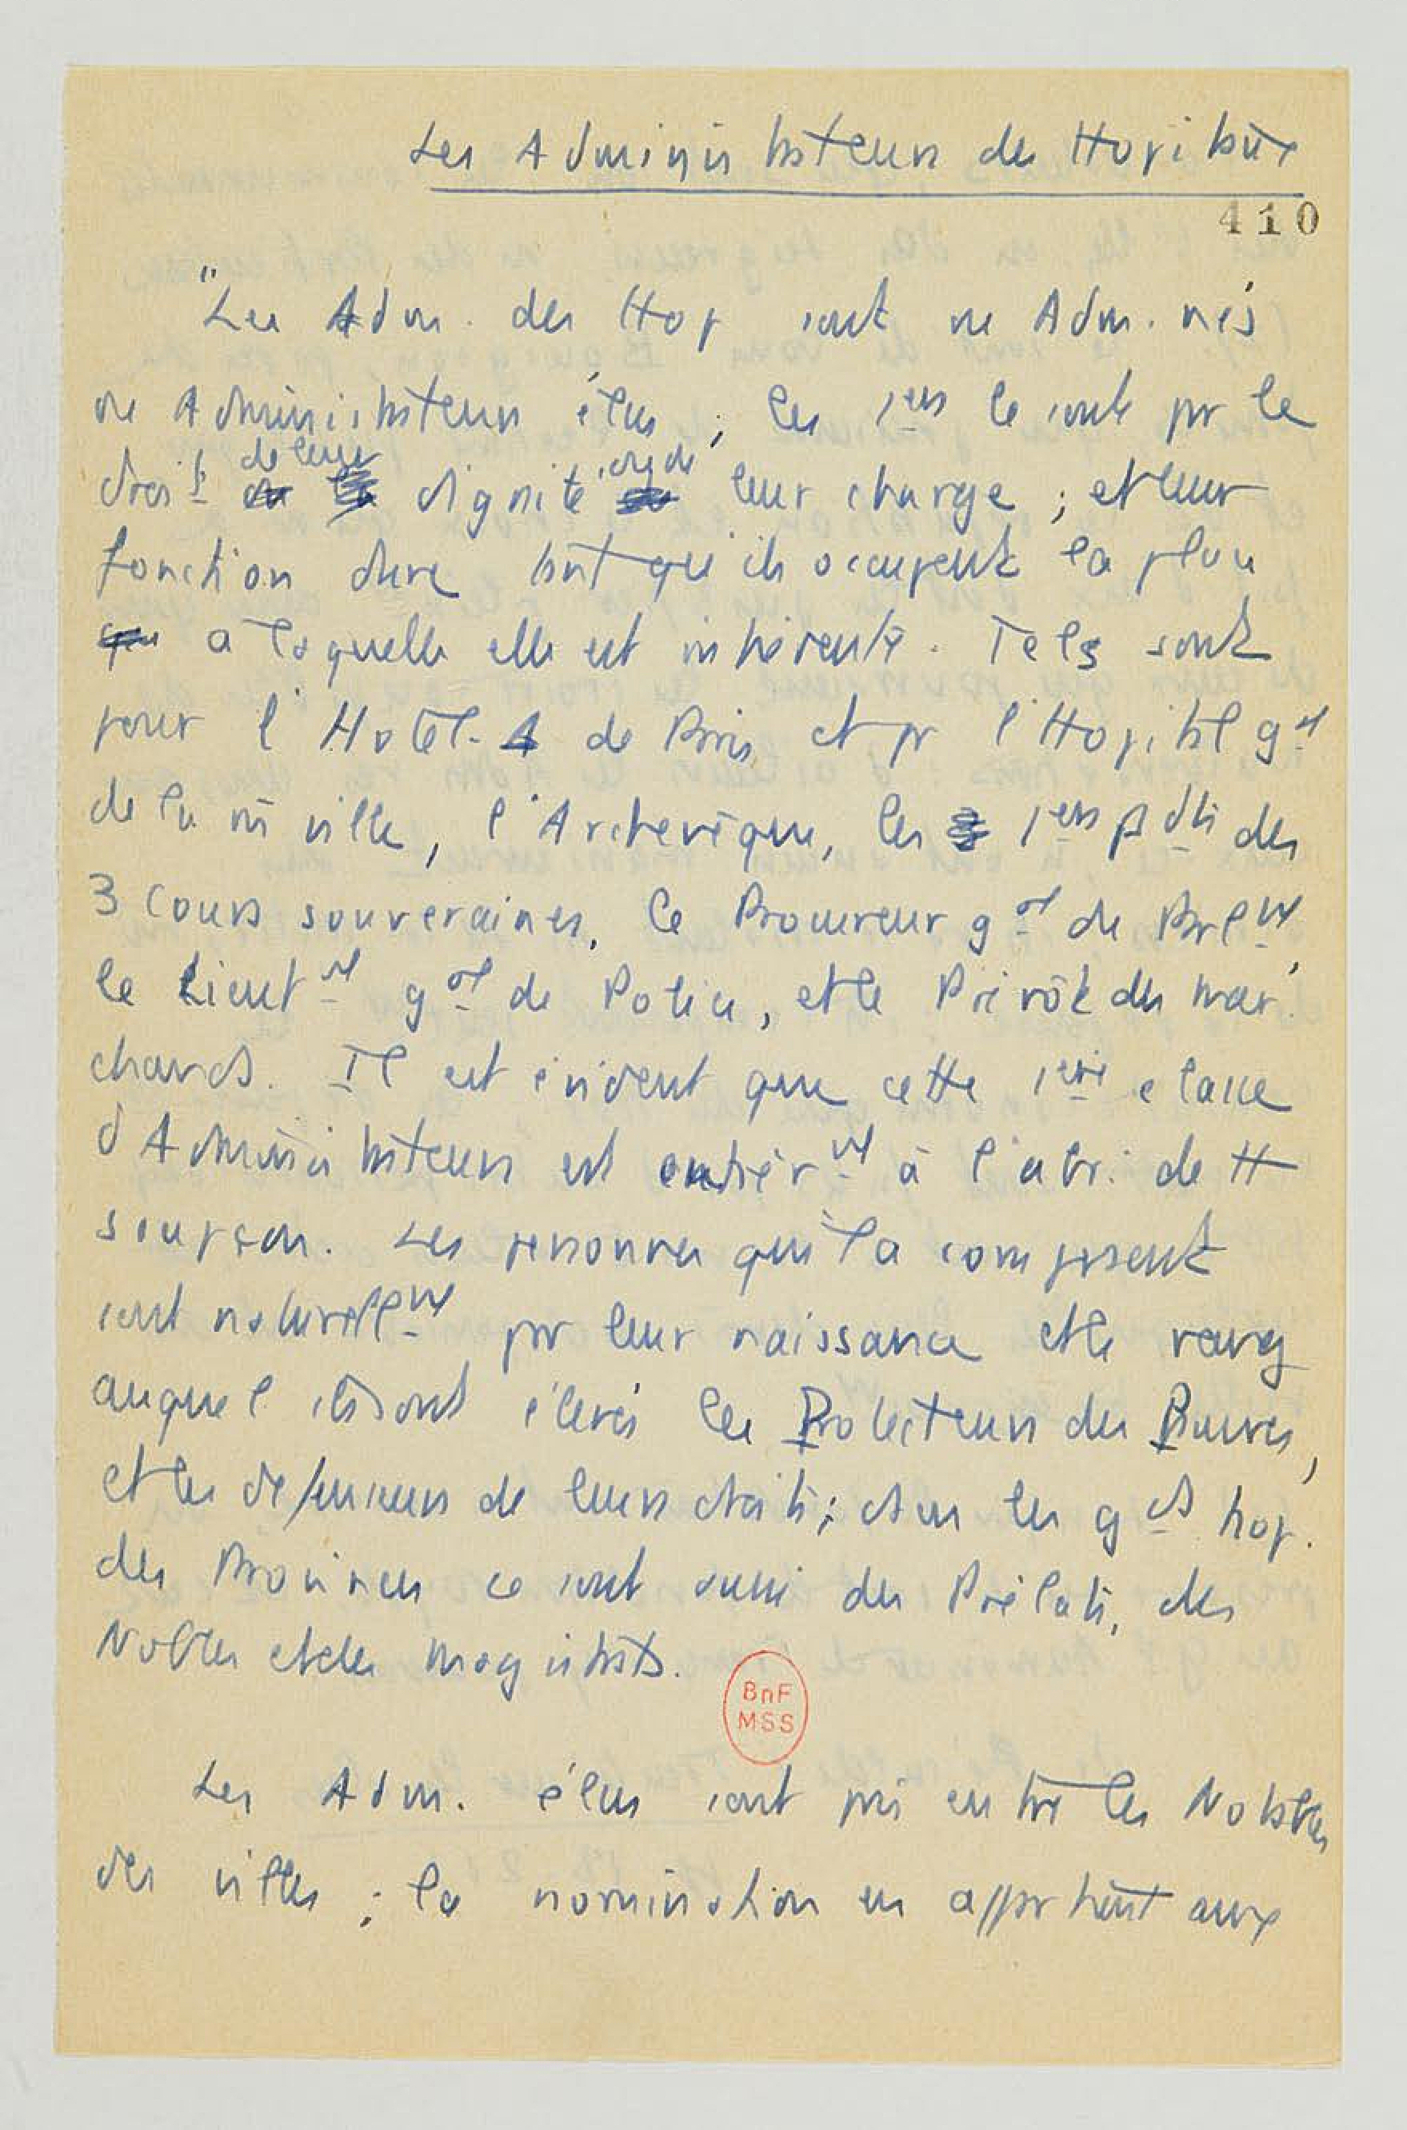 Les Administrateurs des Hopitaux
410
"Les Adm. des Hop sont ou Adm. nés
ou Administrateurs élus ; les 1ers le sont par le
droit de leur dignité ou de leur charge ; et leur
fonction dure tant qu'ils occupent la place
a laquelle elle est inhérente. Tels sont
pour l'Hotel-D de Paris, et pr l'Hopital gal
de la m ville, l'Archevêque, les 1ers Pdts des
3 Cours souveraines, le Procureur gal du Parlmt,
le Lieutnt gal de Police, et le Prévôt des mar-
chands. Il est évident que cette 1ere classe
d'Administrateurs est entièrmt à l'abri de tt
soupçon. Les personnes qui la composent
sont naturellmt par leur naissance et le rang
auquel ils sont élevés les Protecteurs des Pauvres,
et les defenseurs de leurs droits; dans les gds hop.
des Provinces ce sont aussi des Prélats, des
Nobles et des magistrats.
BnF
MSS
Les Adm. élus sont pris entre les Notables
des villes ; la nomination en appartient aux